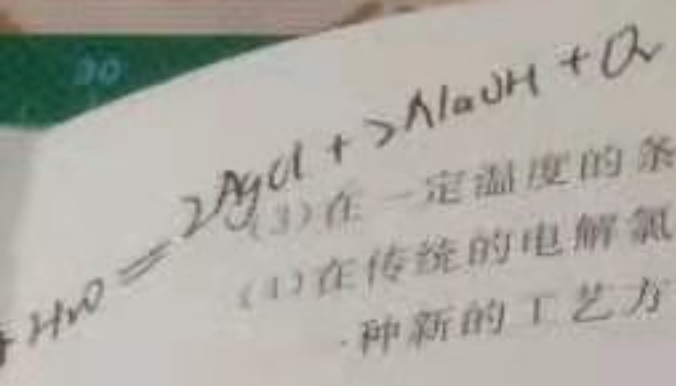 30
+ H2O = 2AgCl + 2NaOH + O2
(3)在一定温度的条
(4)在传统的电解氯
种新的工艺方